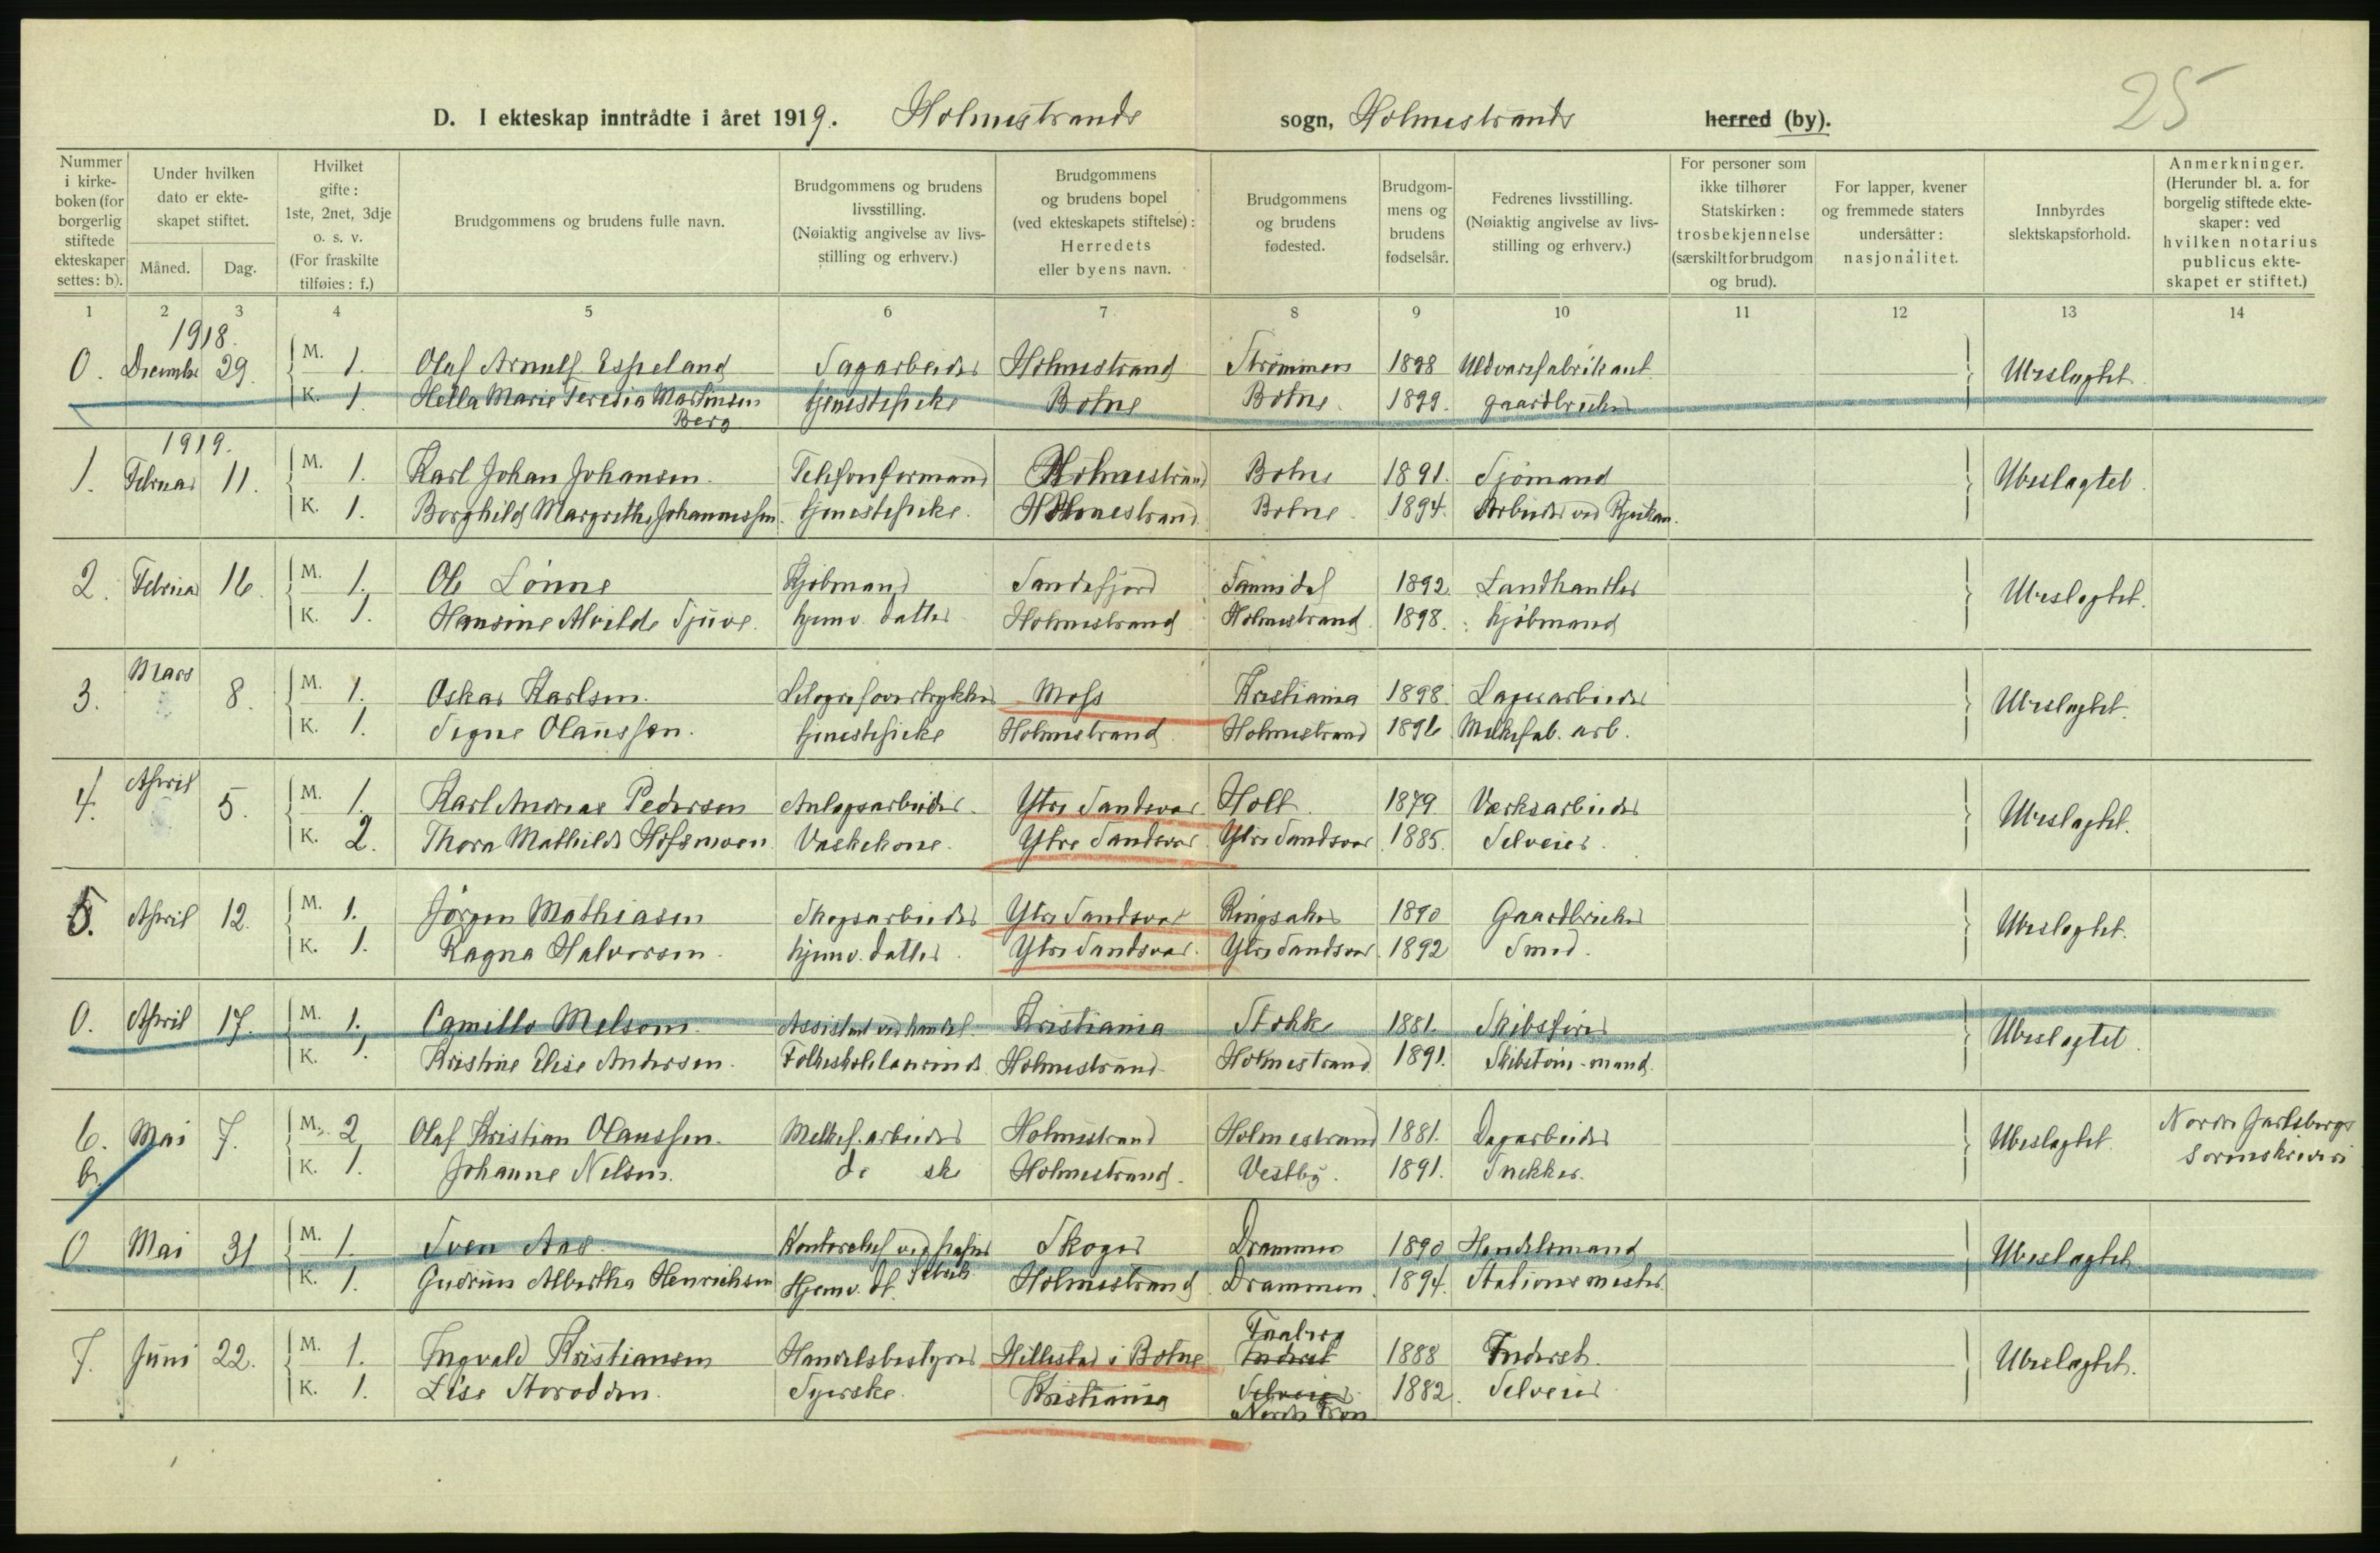 25
D. I ekteskap inntrådte i året 1919. Holmestrands sogn, Holmestrands herred (by).
Nummer i kirkeboken (for borgerlig stiftede ekteskaper settes: b).
Under hvilken dato er ekteskapet stiftet.
Måned. Dag.
Hvilket gifte: 1ste, 2net, 3dje o. s. v. (For fraskilte tilføies: f.)
Brudgommens og brudens fulle navn.
Brudgommens og brudens livsstilling. (Nøiaktig angivelse av livsstilling og erhverv.)
Brudgommens og brudens bopel (ved ekteskapets stiftelse): Herredets eller byens navn.
Brudgommens og brudens fødested.
Brudgommens og brudens fødselsår.
Fedrenes livsstilling. (Nøiaktig angivelse av livsstilling og erhverv.)
For personer som ikke tilhører Statskirken: trosbekjennelse (særskilt for brudgom og brud).
For lapper, kvener og fremmede staters undersåtter: nasjonalitet.
Innbyrdes slektskapsforhold.
Anmerkninger. (Herunder bl. a. for borgelig stiftede ekteskaper: ved hvilken notarius publicus ekteskapet er stiftet.)
1 2 3 4 5 6 7 8 9 10 11 12 13 14
1918.
0. December 29. M. 1. Olaf Arnulf Espeland Sagarbeider Holmestrand Strømmen 1898 Uldvarefabrikant Ubeslagtet
K. 1 Hella Marie Teresia Martinsen Berg tjenestepike Botne Botne. 1899. gaardbruker
1919.
1. Februar 11. M. 1. Karl Johan Johansen. Telefonformand Holmestrand Botne 1891. Sjømand Ubeslagtet
K. 1. Borghild Margrethe Johannessen. tjenestepike. Holmestrand Botne 1894. Arbeider ved Rjukan.
2. Februar 16. M. 1. Ole Lønne Kjøbmand Sandefjord Sannidal 1892. Landhandler Ubeslagtet.
K. 1. Hansine Alvilde Tjuve. hjemv. datter Holmestrand Holmestrand 1898. kjøbmand
3. Mars 8. M. 1. Oskar Karlsen. Litografovertrykker Moss Kristiania 1898. Lagerarbeider Ubeslagtet.
K. 1. Signe Olaussen. tjenestepike Holmestrand Holmestrand 1896 Melkefab. arb.
4. April 5. M. 1. Karl Andreas Pedersen Anlegsarbeider. Ytre Sandsvær Holt 1879. Værksarbeider Ubeslagtet.
K. 2. Thora Mathilde Hofsmoen. Vaskekone. Ytre Sandsvær Ytre Sandsvær 1885. Selveier.
5. April 12. M. 1. Jørgen Mathiasen Skogsarbeider Ytre Sandsvær Ringsaker 1890 Gaardbruker Ubeslagtet.
K. 1. Ragna Halvorsen. hjemv. datter. Ytre Sandsvær. Ytre Sandsvær. 1892 Smed.
0. April 17. M. 1. Camillo Melsom. Assistent ved handel. Kristiania Stokke 1881. Skibsfører Ubeslagtet
K. 1. Kristine Elise Andersen. Folkeskolelærerinde Holmestrand Holmestrand 1891. Skibstøm.mand.
6. b. Mai 7. M. 2 Olaf Kristian Olaussen. Melkef. arbeider Holmestrand Holmestrand 1881. Dagarbeider Ubeslagtet. Nordre Jarlsbergs Sorenskriveri
K. 1. Johanne Nelsen. do ske Holmestrand. Vestby. 1891. Snekker.
0 Mai 31 M. 1. Sven Aas. Kontorchef ved papirfabrik. Skoger Drammen 1890 Handelsmand Ubeslagtet
K. 1. Gudrun Albertha Henrichsen Hjemv. dt. Holmestrand Drammen. 1894. Stationsmester.
7. Juni 22. M. 1. Ingvald Kristiansen Handelsbestyrer Hillestad i Botne Faaberg Inderst 1888 Inderst. Ubeslagtet.
K. 1. Lise Storodden. Syerske. Kristiania Selveier Nordre Fron 1882. Selveier